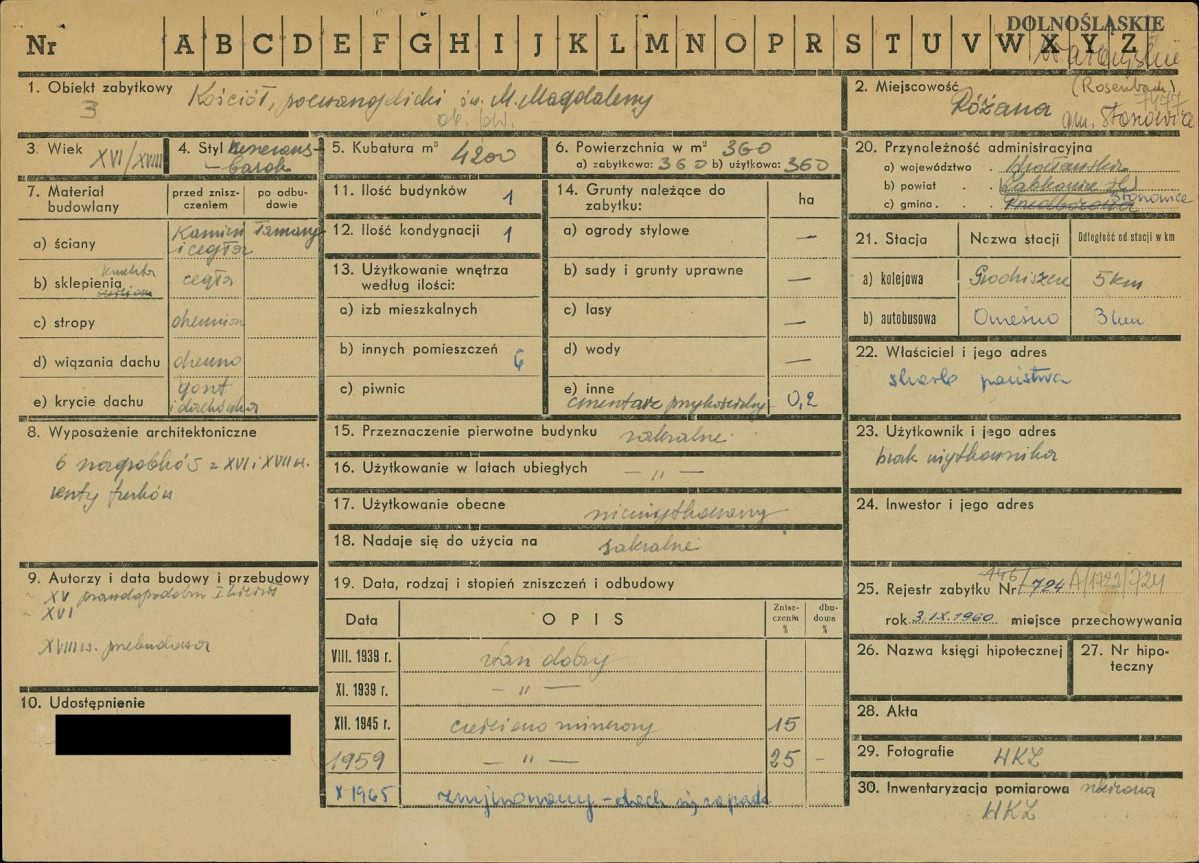 DOLNOŚLĄSKIE
Nr A B C D E F G H I J K L M N O P R S T U V W X Y Z
1. Obiekt zabytkowy Kościół, poewangielicki św. M. Magdaleny
3 ob. pw.
2. Miejscowość (Rosenbach)
Różana gm. Stoszowice
3. Wiek XVI/XVIII
4. Styl renesans-
barok
5. Kubatura m³ 4200
6. Powierzchnia w m² 360
a) zabytkowa: 360 b) użytkowa: 360
7. Materiał budowlany
przed zniszczeniem
po odbudowie
a) ściany Kamień łamany
i cegła
b) sklepienia cegła
c) stropy
d) wiązania dachu drewno
e) krycie dachu gont
i dachówka
8. Wyposażenie architektoniczne
6 nagrobków z XVI i XVII w.
9. Autorzy i data budowy i przebudowy
XV prawdopodobn
XVI
XVIII w. przebudowa
10. Udostępnienie
11. Ilość budynków 1
12. Ilość kondygnacji 1
13. Użytkowanie wnętrza
według ilości:
a) izb mieszkalnych
b) innych pomieszczeń 6
c) piwnic
14. Grunty należące do
zabytku:
ha
a) ogrody stylowe —
b) sady i grunty uprawne —
c) lasy —
d) wody —
e) inne
cmentarz przykościelny 0,2
15. Przeznaczenie pierwotne budynku sakralne
16. Użytkowanie w latach ubiegłych — " —
17. Użytkowanie obecne nieużytkowany
18. Nadaje się do użycia na sakralne
19. Data, rodzaj i stopień zniszczeń i odbudowy
Data
OPIS
Zniszczenia %
dbudowa %
VIII. 1939 r. stan dobry
XI. 1939 r. — " —
XII. 1945 r. cześciowo 15
1959 — " — 25 -
X 1965 zrujnowany - dach się zapada
20. Przynależność administracyjna
a) województwo . Wrocławskie
b) powiat . . Ząbkowice Śl
c) gmina . . Stoszowice
21. Stacja
Nazwa stacji
Odległość od stacji w km
a) kolejowa Grodziszcze 5 km
b) autobusowa 3 km
22. Właściciel i jego adres
skarb państwa
23. Użytkownik i jego adres
brak użytkownika
24. Inwestor i jego adres
25. Rejestr zabytku Nr 724 A/1722/724
rok 3.IX.1960 miejsce przechowywania
26. Nazwa księgi hipotecznej
27. Nr hipoteczny
28. Akta
29. Fotografie WKZ
30. Inwentaryzacja pomiarowa
WKZ